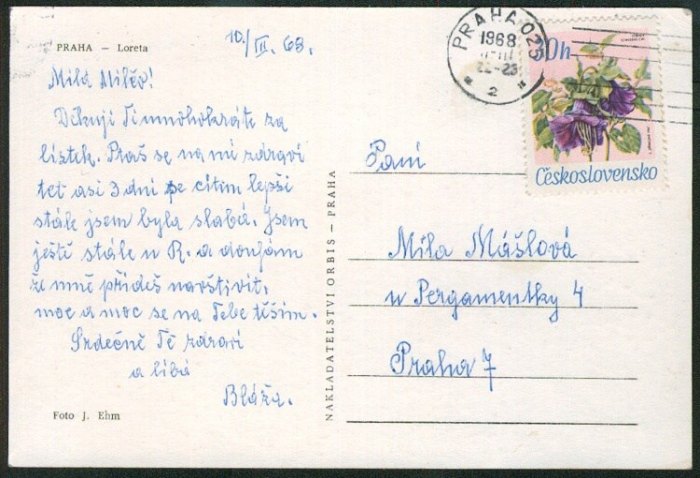 PRAHA – Loreta
10./III. 68.
Milá Mílčo!
Děkuji Ti mnohokráte za
lístek. Ptáš se na mé zdraví
teť asi 3 dni se cítím lepší
stále jsem byla slabá. Jsem
ještě stále u R. a doufám
že mně přídeš navštívit,
moc a moc se na Tebe těším.
Srdečně Tě zdraví
a líbá
Bláža.
Foto J. Ehm
NAKLADATELSTVÍ ORBIS – PRAHA
PRAHA 025
1968
22-23
2
30h
Československo
Paní
Míla Mášlová
u Pergamentky 4
Praha 7